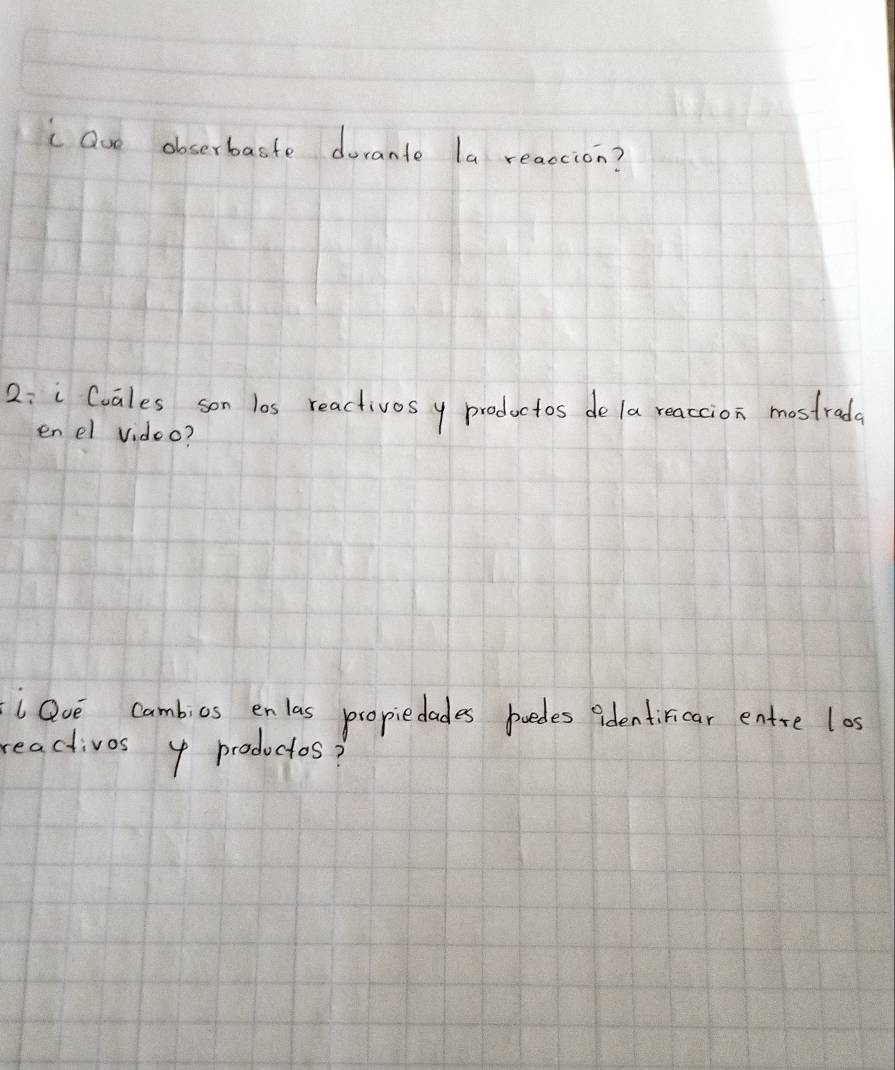 ¿Que obserbaste durante la reaccion?
2: ¿Cuáles son los reactivos y productos de la reacción mostrada
en el video?
¿Qué cambios en las propiedades puedes identificar entre los
reactivos y productos?